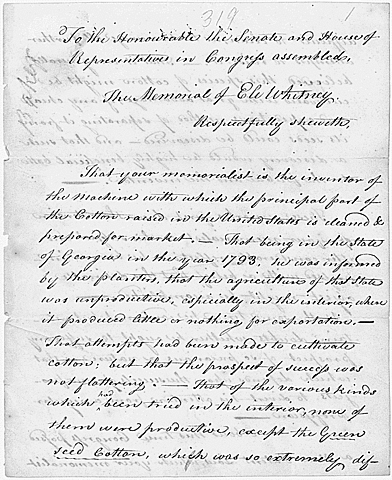 319 1
To the Honourable the Senate and House of
Representatives in Congress assembled,
The Memorial of Eli Whitney
Respectfully sheweth,
That your memorialist is the inventor of
the Machine with which the principal part of
the Cotton raised in the United States is cleaned &
prepared for market. — That being in the State
of Georgia in the year 1793, he was informed
by the planters, that the agriculture of that State
was unproductive, especially in the interior, where
it produced little or nothing for exportation. —
That attempts had been made to cultivate
cotton; but that the prospect of success was
not flattering. — That of the various kinds
which had been tried in the interior, none of
them were productive, except the Green
seed Cotton, which was so extremely dif-